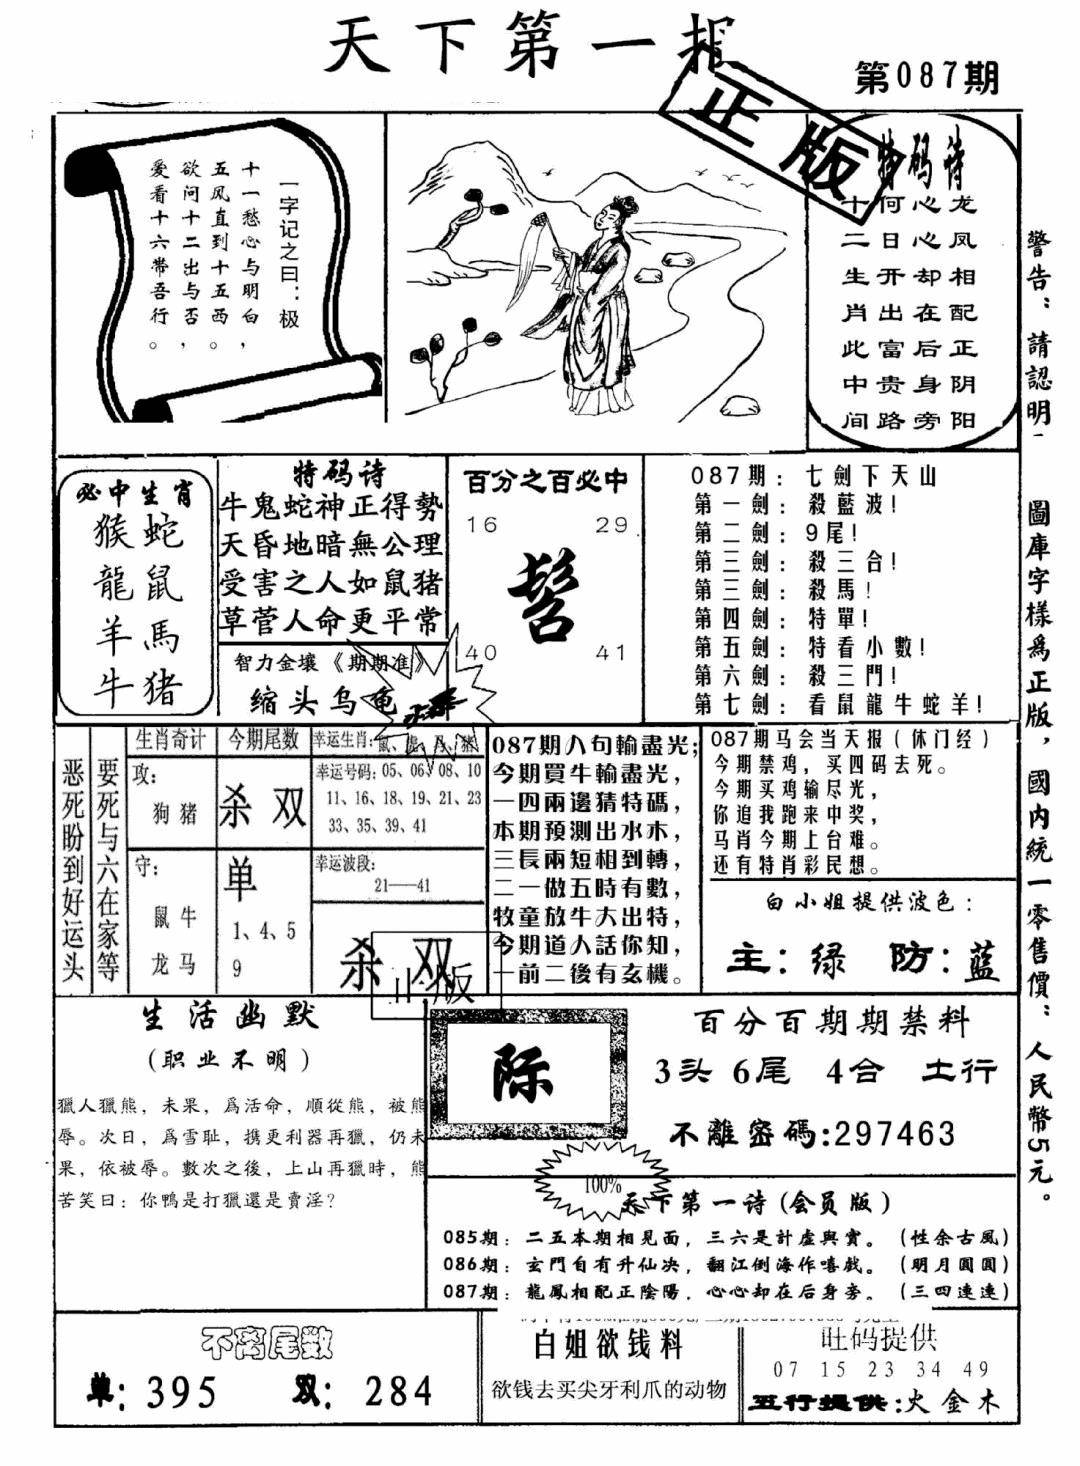 天下第一报
正版
第087期
一字记之曰：极
十一愁心与明白，
五凤直到十五西。
欲问十二出与否，
爱看十六带吾行。
特码诗
龙凤相配正阴阳
心心却在后身旁
何日开出富贵路
十二生肖此中间
警告：請認明一
圖庫字樣爲正版，國内統一零售價：人民幣5元。
必中生肖
猴蛇
龍鼠
羊馬
牛猪
特码诗
牛鬼蛇神正得勢
天昏地暗無公理
受害之人如鼠猪
草菅人命更平常
智力金壤《期期准》
缩头乌龟
百分之百必中
16 29
髻
40 41
087期：七劍下天山
第一劍：殺藍波!
第二劍：9尾!
第三劍：殺三合!
第三劍：殺馬!
第四劍：特單!
第五劍：特看小數!
第六劍：殺三門!
第七劍：看鼠龍牛蛇羊!
恶死盼到好运头
要死与六在家等
生肖奇计
攻：
狗猪
守：
鼠牛
龙马
今期尾数
杀双
单
1、4、5
9
幸运生肖：
幸运号码：05、06、08、10
11、16、18、19、21、23
33、35、39、41
幸运波段：
21——41
杀双
正版
087期八句輸盡光；
今期買牛輸盡光，
一四兩邊猜特碼，
本期預測出水木，
三長兩短相到轉，
二一做五時有數，
牧童放牛大出特，
今期道人話你知，
一前二後有玄機。
087期马会当天报（休门经）
今期禁鸡，买四码去死。
今期买鸡输尽光，
你追我跑来中奖，
马肖今期上台难。
还有特肖彩民想。
白小姐提供波色：
主：绿 防：蓝
生活幽默
(职业不明)
獵人獵熊，未果，爲活命，順從熊，被熊
辱。次日，爲雪耻，携更利器再獵，仍未
果，依被辱。數次之後，上山再獵時，熊
苦笑曰：你鴨是打獵還是賣淫?
际
百分百期期禁料
3头 6尾 4合 土行
不離密碼:297463
100%
天下第一诗(会员版)
085期：二五本期相見面，三六是計虛與實。（性余古風）
086期：玄門自有升仙决，翻江倒海作嘻戲。（明月圓圓）
087期：龍鳳相配正陰陽，心心却在后身旁。（三四連連）
不离尾数
单：395 双：284
白姐欲钱料
欲钱去买尖牙利爪的动物
旺码提供
07 15 23 34 49
五行提供:火金木